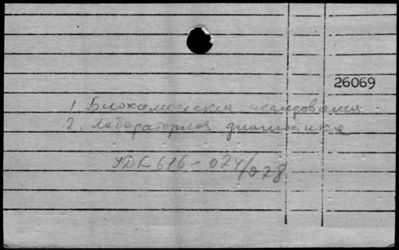 26069
1. Биохимические исследования
2. Лабораторная диагностика
УДК 616-074/078